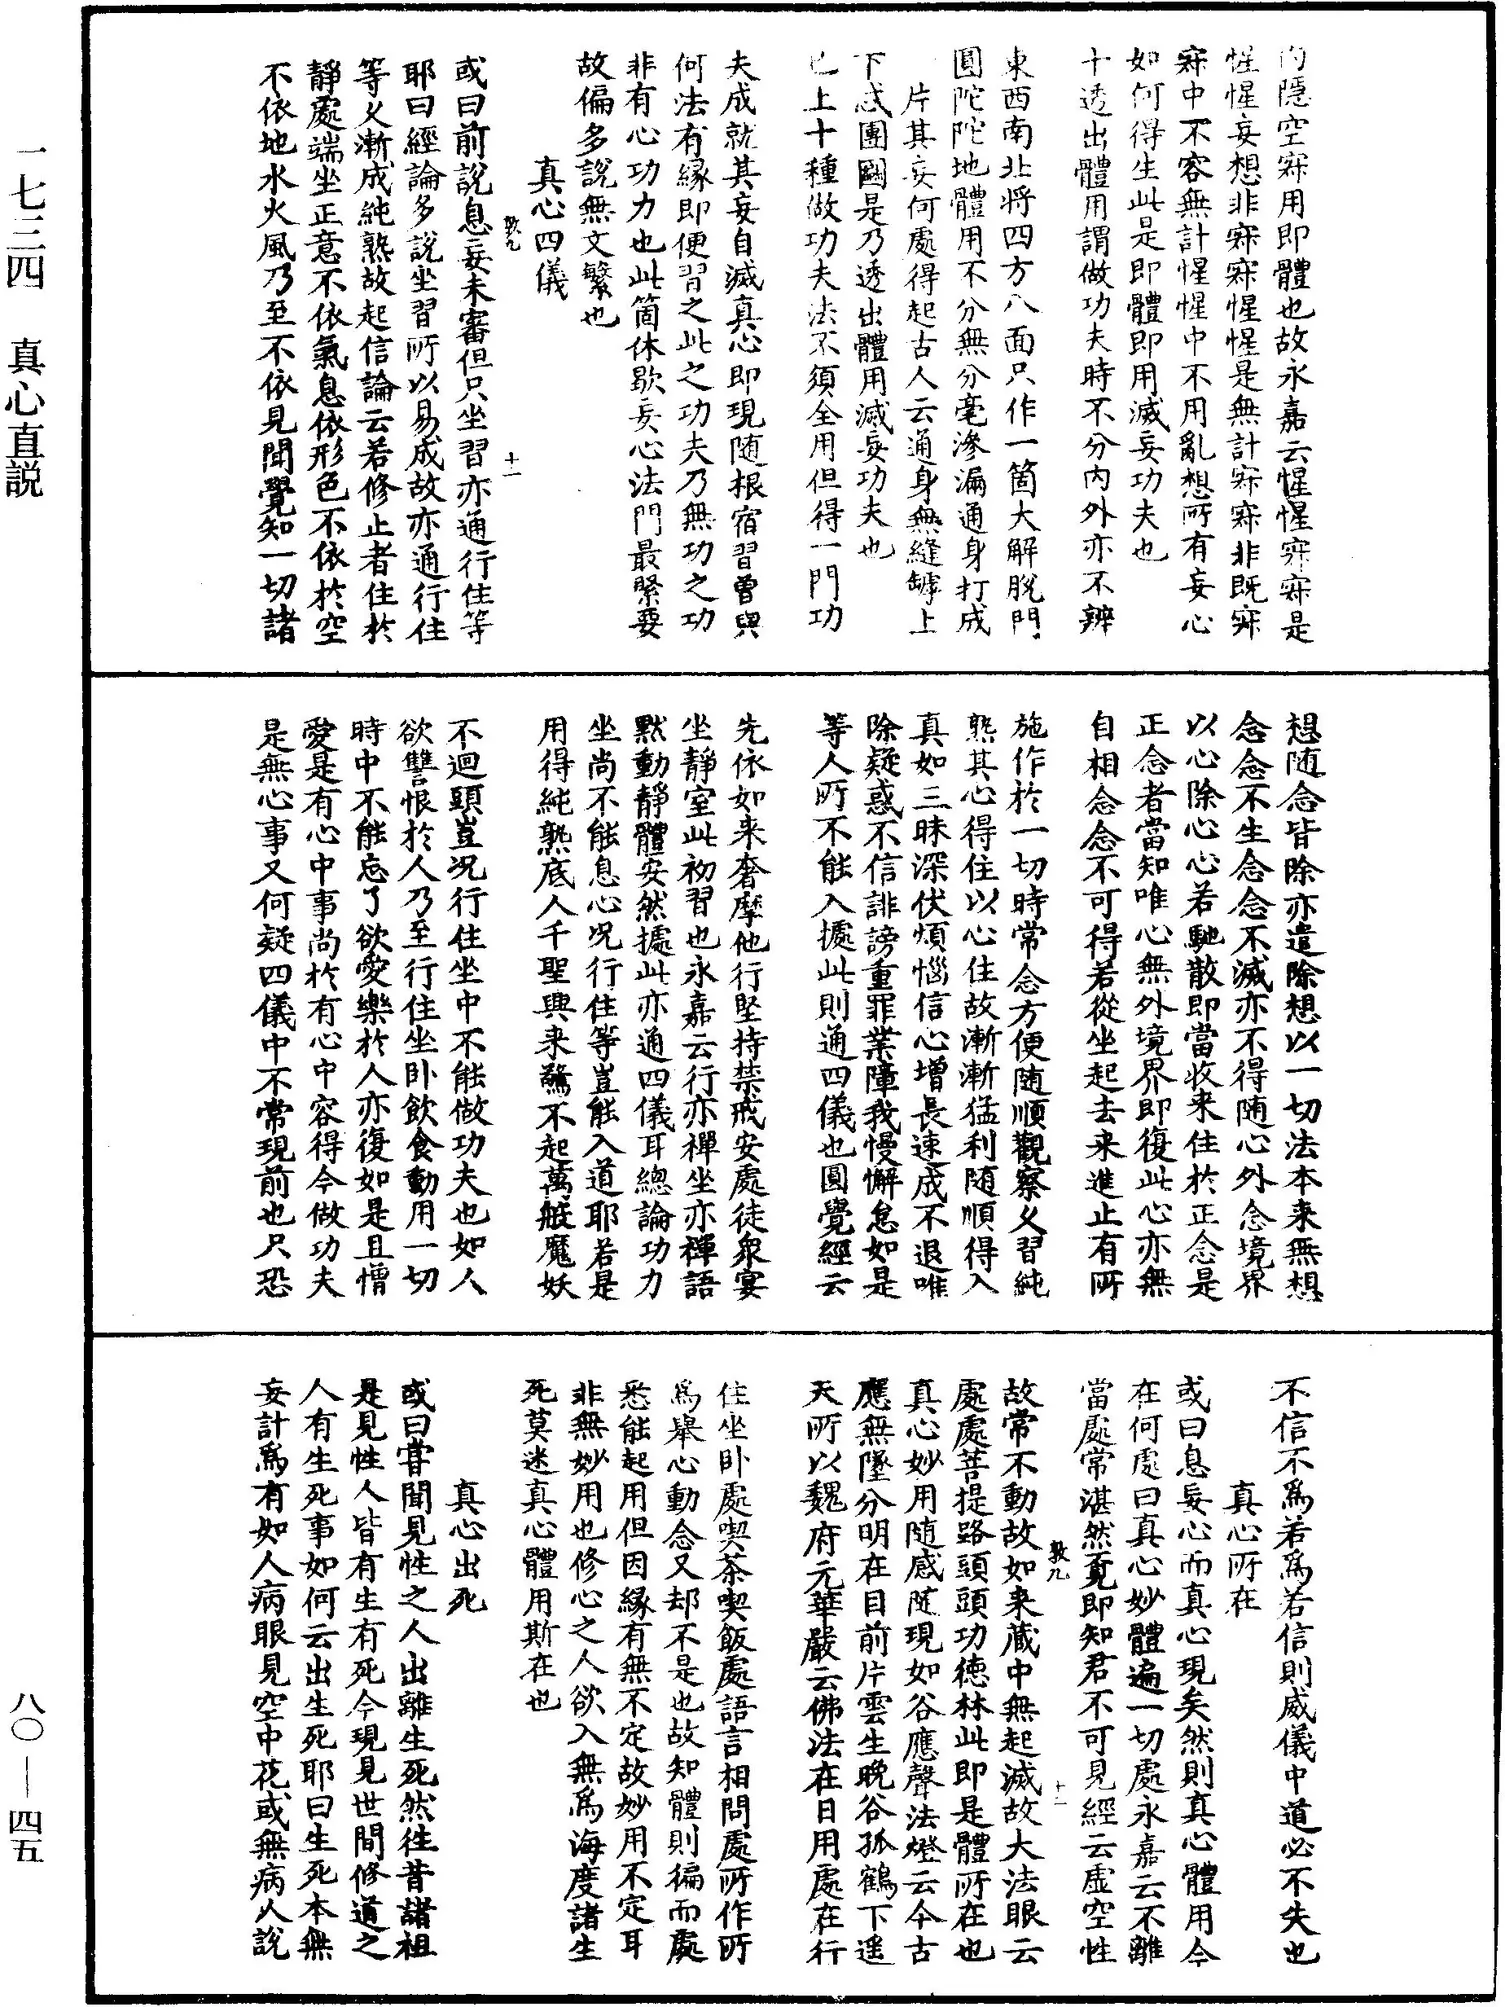 一七三四　真心直説
内隱空寂用即體也故永嘉云惺惺寂寂是
惺惺妄想非寂寂惺惺是無計寂寂非既寂
寂中不容無計惺惺中不用亂想所有妄心
如何得生此是即體即用滅妄功夫也
十透出體用謂做功夫時不分内外亦不辨
東西南北將四方八面只作一箇大解脱門
圓陀陀地體用不分無分毫滲漏通身打成
一片其妄何處得起古人云通身無縫罅上
下忒團圞是乃透出體用滅妄功夫也
已上十種做功夫法不須全用但得一門功
夫成就其妄自滅真心即現随根宿習曾與
何法有緣即便習之此之功夫乃無功之功
非有心功力也此箇休歇妄心法門最緊要
故偏多説無文繁也
真心四儀
或曰前説息妄未審但只坐習亦通行住等
耶曰經論多説坐習所以易成故亦通行住
等乆漸成純熟故起信論云若修止者住於
靜處端坐正意不依氣息依形色不依於空
不依地水火風乃至不依見聞覺知一切諸
敦九
十一
想随念皆除亦遣除想以一切法本来無想
念念不生念念不滅亦不得随心外念境界
以心除心心若馳散即當收来住於正念是
正念者當知唯心無外境界即復此心亦無
自相念念不可得若從坐起去来進止有所
施作於一切時常念方便随順觀察乆習純
熟其心得住以心住故漸漸猛利随順得入
真如三昧深伏煩惱信心增長速成不退唯
除疑惑不信誹謗重罪業障我慢懈怠如是
等人所不能入據此則通四儀也圓覺經云
先依如来奢摩他行堅持禁戒安處徒衆宴
坐靜室此初習也永嘉云行亦禪坐亦禪語
默動靜體安然據此亦通四儀耳總論功力
坐尚不能息心况行住等豈能入道耶若是
用得純熟底人千聖興来驚不起萬般魔妖
不迴頭豈况行住坐中不能做功夫也如人
欲讐恨於人乃至行住坐卧飲食動用一切
時中不能忘了欲愛樂於人亦復如是且憎
愛是有心中事尚於有心中容得今做功夫
是無心事又何疑四儀中不常現前也只恐
不信不爲若爲若信則威儀中道必不失也
真心所在
或曰息妄心而真心現矣然則真心體用今
在何處曰真心妙體遍一切處永嘉云不離
當處常湛然覓即知君不可見經云虚空性
敦九
十二
故常不動故如来藏中無起滅故大法眼云
處處菩提路頭頭功徳林此即是體所在也
真心妙用随感随現如谷應聲法燈云今古
應無墜分明在目前片雲生晩谷孤鶴下遥
天所以魏府元華嚴云佛法在日用處在行
住坐卧處喫茶喫飯處語言相問處所作所
爲舉心動念又却不是也故知體則徧而處
悉能起用但因緣有無不定故妙用不定耳
非無妙用也修心之人欲入無爲海度諸生
死莫迷真心體用斯在也
真心出死
或曰嘗聞見性之人出離生死然往昔諸祖
是見性人皆有生有死今現見世間修道之
人有生死事如何云出生死耶曰生死本無
妄計爲有如人病眼見空中花或無病人説
八〇—四五